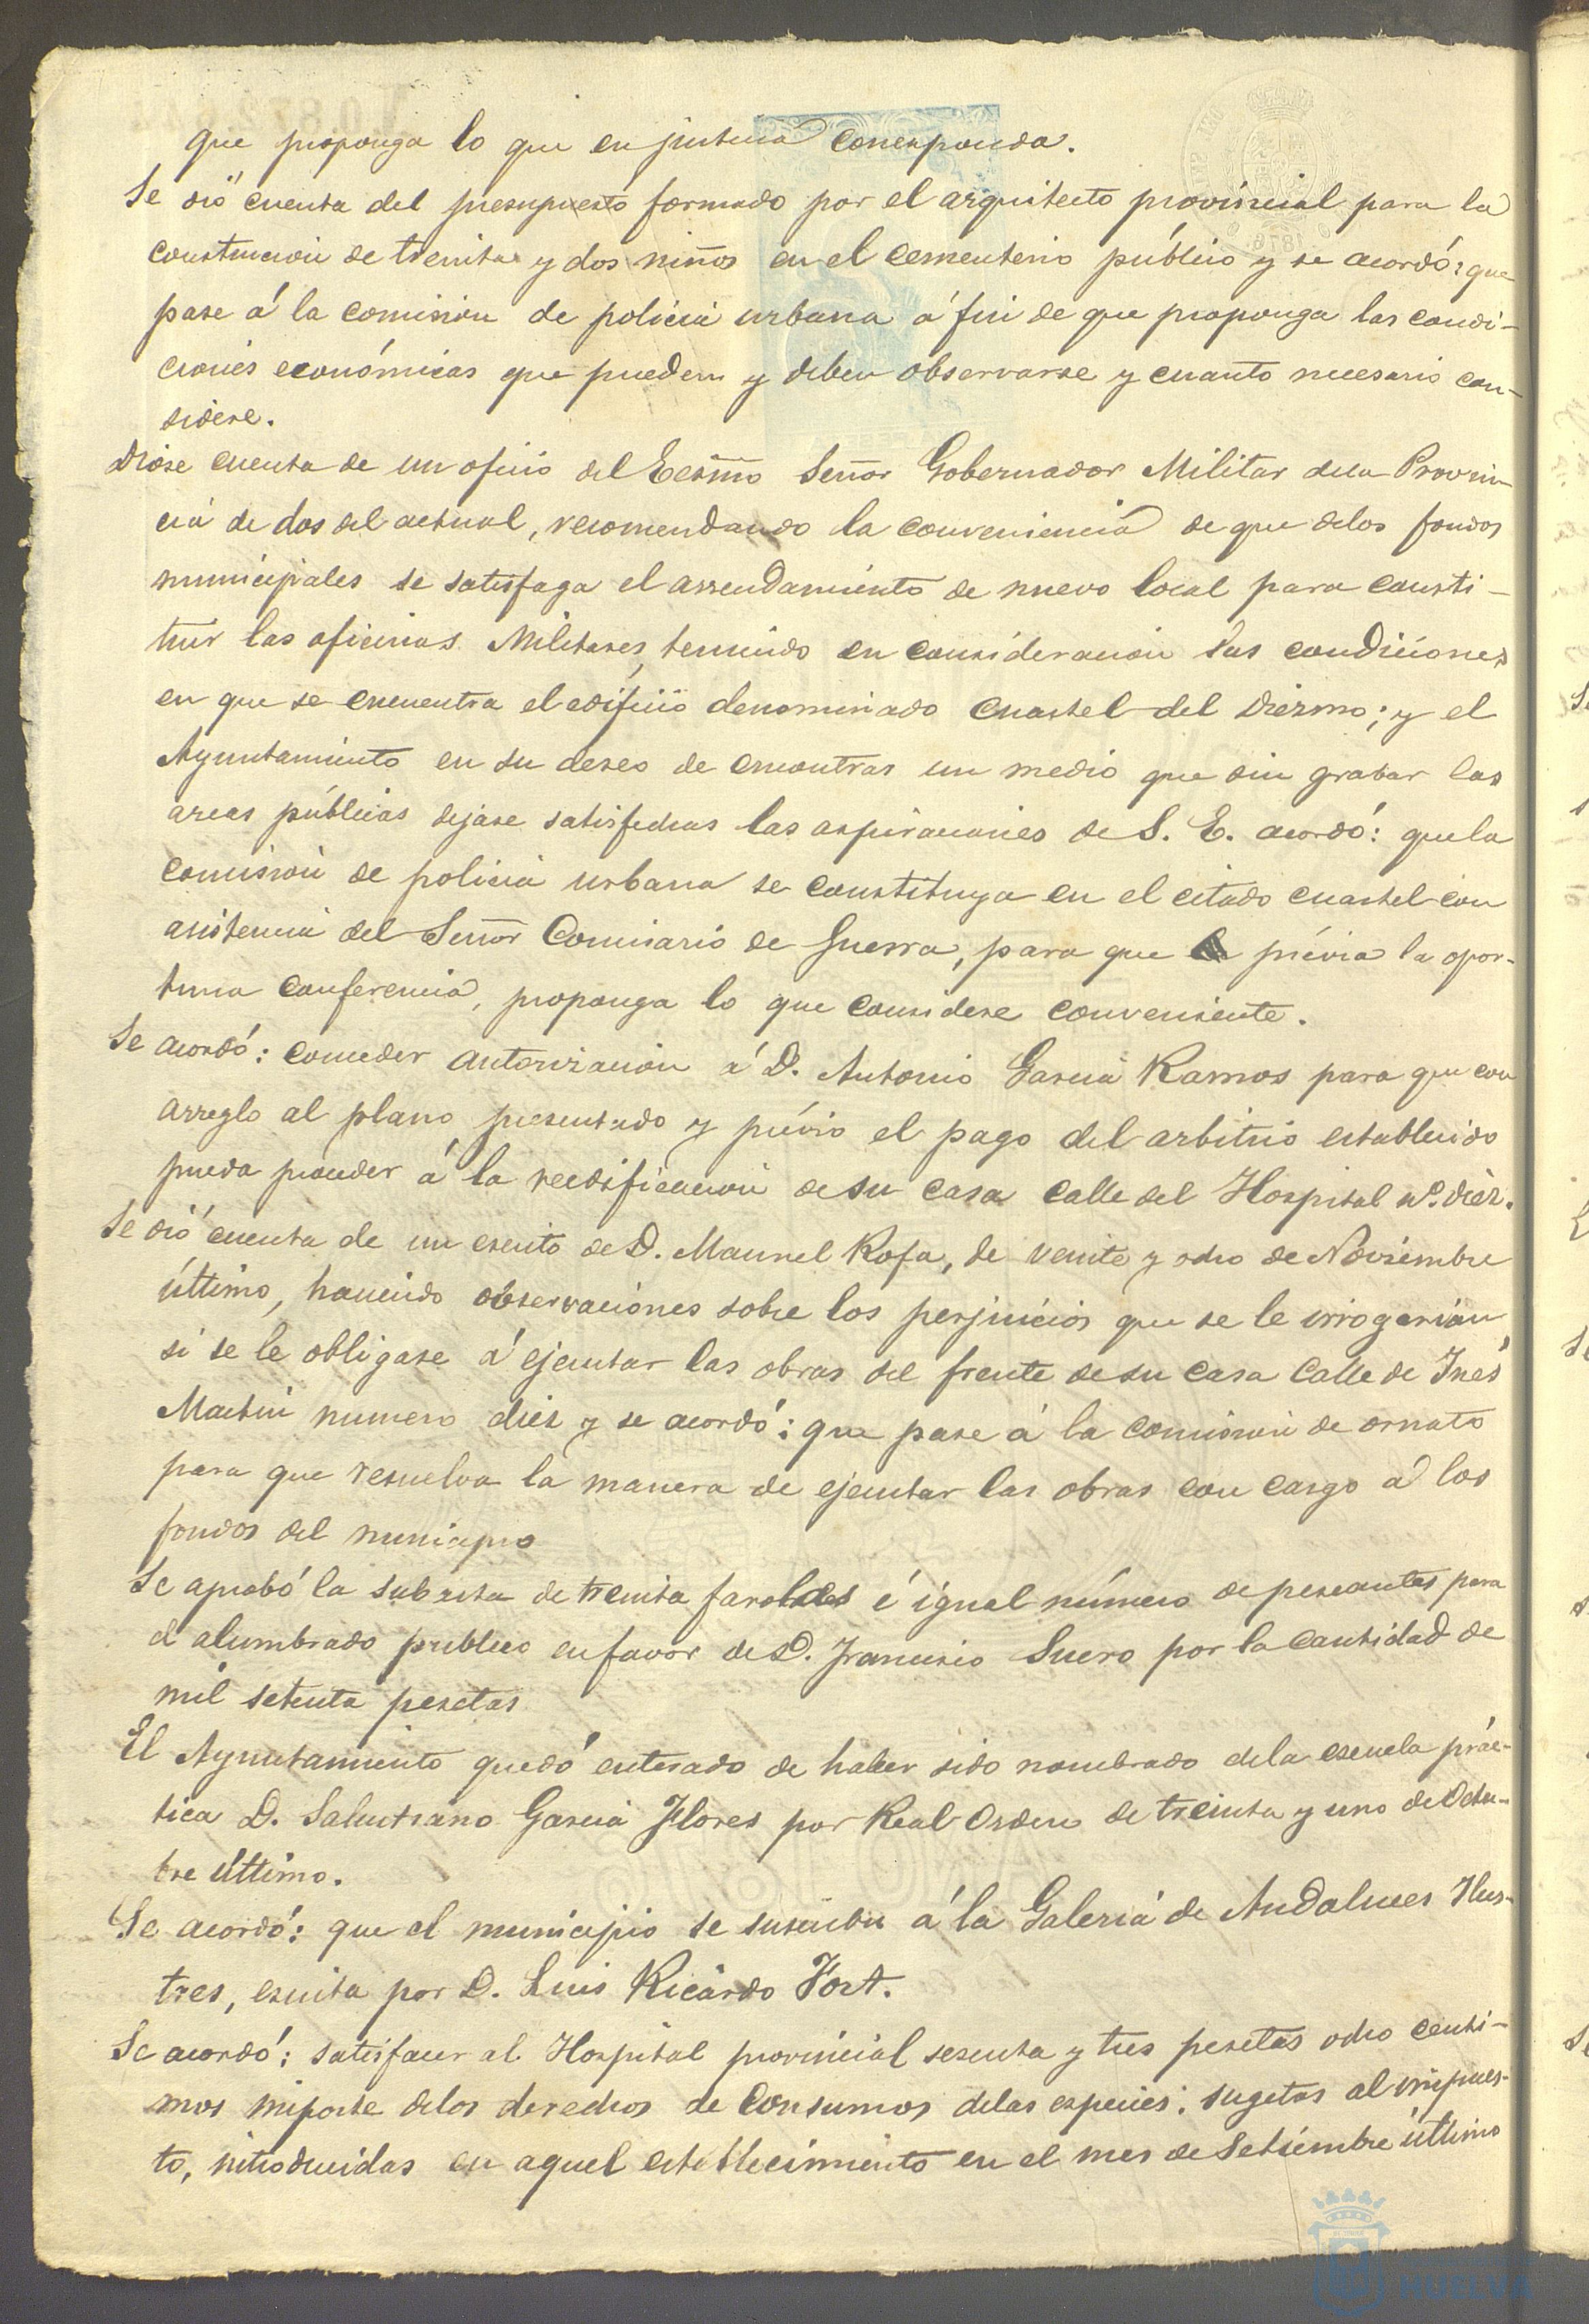 que proponga lo que en justicia corresponda.
Se dió cuenta del presupuesto formado por el arquitecto provincial para la
construccion de treinta y dos niños en el cementerio público y se acordó: que
pase á la comision de policia urbana á fin de que proponga las condi-
ciones económicas que pueden y deben observarse y cuanto necesario con-
sidere.
Diose cuenta de un oficio del Ecsmo Señor Gobernador Militar dela Provin-
cia de dos del actual, recomendando la conveniencia de que delos fondos
municipales se satisfaga el arrendamiento de nuevo local para consti-
tuir las oficinas Militares, teniendo en consideracion las condiciones
en que se encuentra el edificio denominado cuartel del Diezmo; y el
Ayuntamiento en su deseo de encontrar un medio que sin grabar las
arcas públicas dejase satisfechas las aspiraciones de S. E. acordó: que la
comision de policia urbana se constituya en el citado cuartel con
asistencia del Señor Comisario de Guerra, para que prévia la opor-
tuna conferencia, proponga lo que considere conveniente.
Se acordó: conceder autorizacion á D. Antonio Garcia Ramos para que con
arreglo al plano presentado y prévio el pago del arbitrio establecido
pueda proceder á la reedificacion de su casa calle del Hospital nº. diez.
Se dió cuenta de un escrito de D. Manuel Rofa, de veinte y ocho de Noviembre
último, haciendo observaciones sobre los perjuicios que se le irrogarian
si se le obligase á ejecutar las obras del frente de su casa Calle de Inés
Martin numero diez y se acordó: que pase á la comision de ornato
para que resuelva la manera de ejecutar las obras con cargo á los
fondos del municipio
Se aprobó la subasta de treinta faroles é igual número de pescantes para
el alumbrado publico en favor de D. Francisco Suero por la cantidad de
mil setenta pesetas
El Ayuntamiento quedó enterado de haber sido nombrado dela escuela prác-
tica D. Salustiano Garcia Flores por Real Orden de treinta y uno de Octu-
bre último.
Se acordó: que el municipio se suscriba á la Galeria de Andaluces Ilus-
tres, escrita por D. Luis Ricardo Fort.
Se acordó: satisfacer al Hospital provincial sesenta y tres pesetas ocho centi-
mos importe delos derechos de Consumos delas especies sugetas al impues-
to, introducidas en aquel establecimiento en el mes de Setiembre último
HUELVA